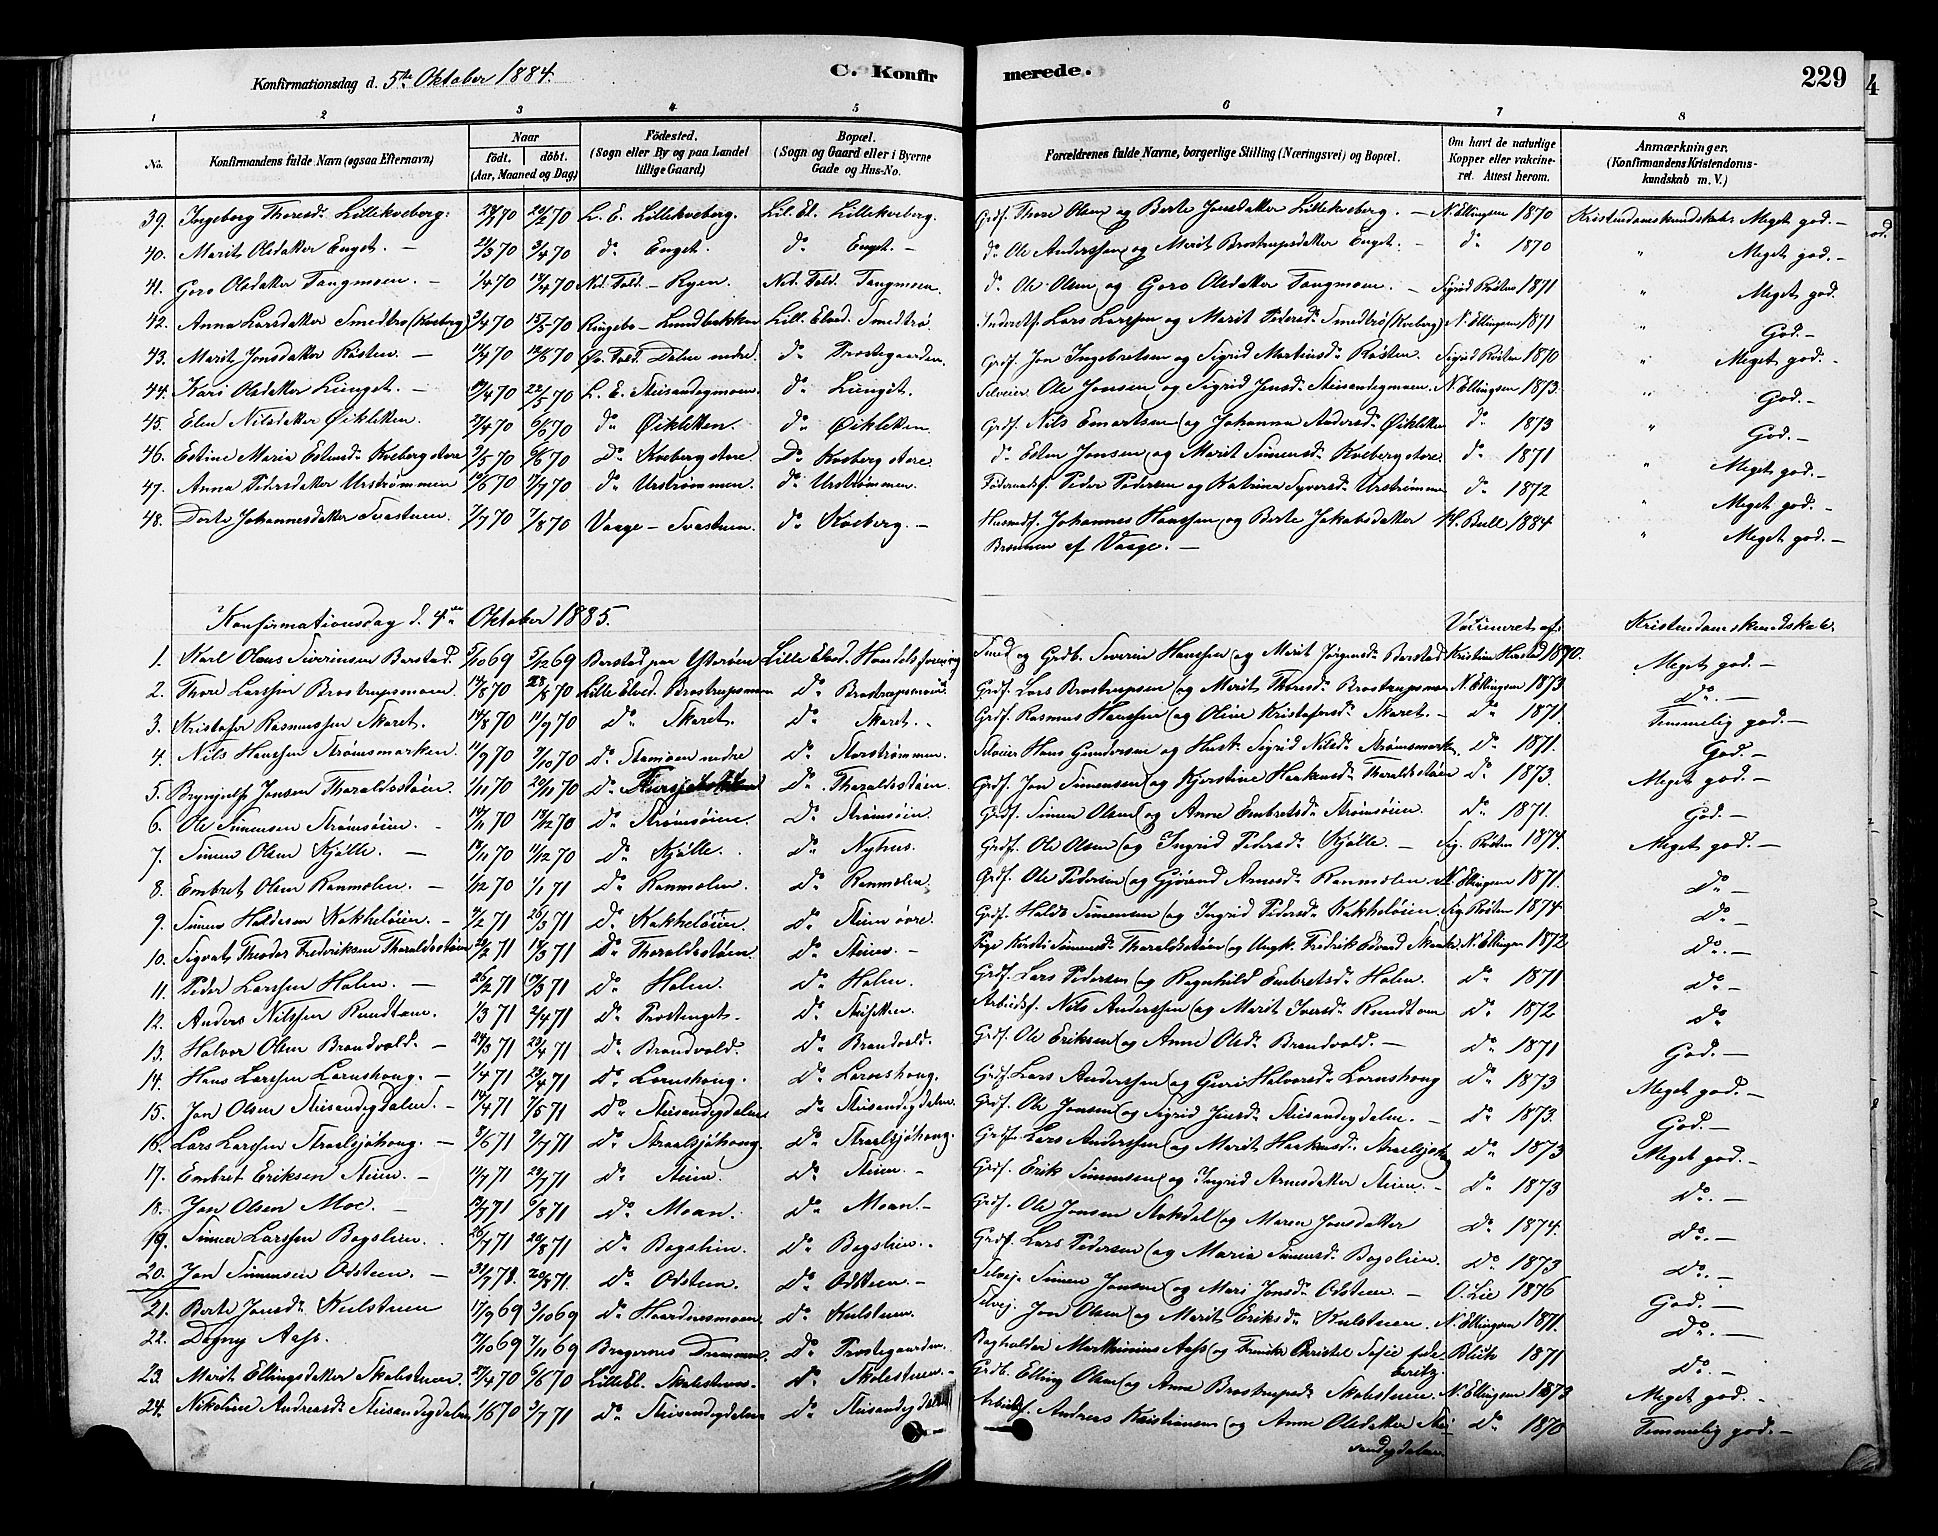 Konfirmationsdag d. 5te Oktober 1884.
C. Konfirmerede.
229
1 2 3 4 5 6 7 8
No. Konfirmandens fulde Navn (ogsaa Efternavn) Naar født. døbt. (Aar, Maaned og Dag) Fødested. (Sogn eller By og paa Landet tillige Gaard) Bopæl. (Sogn og Gaard eller i Byerne Gade og Hus-No. Forældrenes fulde Navne, borgerlige Stilling (Næringsvei) og Bopæl. Om havt de naturlige Kopper eller vakcineret. Attest herom. Anmærkninger. (Konfirmandens Kristendomskundskab m. V.)
39. Ingeborg Thoresd. Lillekveberg. L. E. Lillekveberg. Lil. El. Lillekveberg. Grdf. Thore Olsen og Berte Jonsdatter Lillekveberg. — N. Ellingsen 1870 Kristendomskundskab: Meget god. —
40. Marit Olsdatter Enget. — 3/4 70 do Enget. do Enget. — do Ole Anderssen og Marit Brostrupsdatter Enget. — do 1870 " Meget god. —
41. Goro Olsdatter Tangmoen. — 1/4 70 18/4 70 Ned. Fold. — Ryen. Ned. Fold. Tangmoen. do Ole Olsen og Goro Olsdatter Tangmoen. — Sigrid Røsten 1871 " Meget god.
42. Anna Larsdatter Smedbrø (Kveberg) 3/4 70 15/5 70 Ringebo — Lundbakken Lill. Elved. Smedbrø. Inderstf. Lars Larssen og Marit Pedersd. Smedbrø (Kveberg) N. Ellingsen 1871 " God. —
43. Marit Jonsdatter Røsten. — 12/6 70 Øv. Fold. Dalen nedre. do Prostegaarden. Grdf. Jon Ingebretsen og Sigrid Martinsd. Røsten. Sigrid Røsten 1870 " Meget god. —
44. Kari Olsdatter Lunget. — 22/5 70 L. E. Steisandegmoen. do Lunget. Selveier Ole Jonsen og Sigrid Jensd. Steisandegmoen. N. Ellingsen 1873. " God. —
45. Eline Nilsdatter Øikletten. 6/6 70 do Øikletten. do Øikletten. Grdf. Nils Emertsen og Johanna Andersd. Øikletten do 1873 " God. —
46. Estine Maria Estensd. Kveberg store 9/6 70 Do Kveberg store. Do Kveberg store. do Esten Jonsen og Marit Simensd. Kveberg store. do 1871 " Meget god. —
47. Anna Pedersdatter Urstrømmen 7/7 70 do Urstrømmen. do Urstrømmen. Føderaadsf. Peder Pedersen og Katrina Syversd. Urstrømmen do 1872 " Meget god. —
48. Dorte Johannesdatter Svastuen. 7/7 70 7/8 70 Vaage — Svastuen. do Kveberg. — Husmdf. Johannes Hanssen og Berte Jakobsdatter Brønnen af Vaage. — Bull 1884 " Meget god. —
Konfirmationsdag d. 4de Oktober 1885.
Vaccineret af: Kristendomskundskab.
1. Karl Olaus Severinsen Barstad. 5/10 69 5/12 69 Barstad paa Ytterøen Lille Elved. Handelsforening Smed og Grdb. Severin Hanssen og Marit Jørgensd. Barstad Kristine Herstad 1870. Meget god. —
2. Thore Larssen Brostrupsmoen. 14/8 70 28/8 70 Lille Elved. Brostrupsmoen do Brostrupsmoen Grdf. Lars Brostrupsen og Marit Thoresd. Brostrupsmoen N. Ellingsen 1873 Do. —
3. Kristofer Rasmussen Skaret. 14/8 70 11/9 70 Do Skaret. do Skaret. — Grdf. Rasmus Hanssen og Oline Kristofersd. Skaret. — do 1871. Temmelig god. —
4. Nils Hanssen Strømsmarken. 11/9 70 9/10 70 do Stamoen nedre do Storstrømmen. Selveier Hans Gundersen og Hust. Sigrid Nilsd. Strømsmarken. do 1871. God. —
5. Brynjulf Jonsen Tharaldstøen. 1/11 70 20/11 70 do do Tharaldstøen. Grdf. Jon Simensen og Kjerstine Haakensd. Tharaldstøen do 1873. Meget god. —
6. Ole Simensen Strømsøien. 70 70 do Strømsøien. do Strømsøien. Grdf. Simen Olsen og Anne Embretsd. Strømsøien. do 1871. God. —
7. Simen Olsen Kjølle. — 70 11/12 70 do Kjølle. do Nyhus. Grdf. Ole Olsen og Ingrid Pedersd. Kjølle. — Sig. Røsten 1874. Meget god. —
8. Embret Olsen Ranmælen. — 1/12 70 1/1 71 do Ranmælen. do Ranmælen. Grdf. Ole Pedersen og Gjørend Arnesd. Ranmælen N. Ellingsen 1871. Do —
9. Simen Haldosen Kakkeløien. — 9/2 71 26/3 71 do Kakkeløien. do Steien øvre. Grdf. Haldo Simensen og Ingrid Pedersd. Kakkeløien. Sig. Røsten 1874. Do —
10. Sigvat Theodor Fredriksen Tharaldstøen 71 71 Do Tharaldstøen. do Steien. — Pige Kirsti Simensd. Tharaldstøen og Ungk. Fredrik Edvard Skaak. N. Ellingsen 1872 Do. —
11. Peder Larssen Holen. — 26/2 71 19/3 71 do Holen. do Holen. Grdf. Lars Pedersen og Ragnhild Embretsd. Holen do 1871 do —
12. Anders Nilssen Rundtom. 1/3 71 2/4 71 do Prostenget. do Arbeidsf. Nils Anderssen og Marit Iversd. Rundtom do 1872 do
13. Halvor Olsen Brandvold. — 24/3 71 23/4 71 do Brandvold. do Brandvold. Grdf. Ole Eriksen og Anne Olsd. Brandvold. — do 1871 God. —
14. Hans Larssen Lornshoug. — 1/4 71 23/4 71 do Lornshoug. do Lornshoug. Grdf. Lars Anderssen og Guri Halvorsd. Lornshoug do 1873 Meget god. —
15. Jon Olsen Steisandegdalen. — 14/4 71 7/5 71 do Steisandegdalen do Steisandegdalen. Grdf. Ole Jonsen og Sigrid Jensd. Steisandegdalen. — do 1873. God. —
16. Lars Larssen Straalsjøhoug. — 8/6 71 9/7 71 do Straalsjøhoug. do Straalsjøhoug. Grdf. Lars Anderssen og Marit Haakensd. Straalsjøhoug do 1873 Meget god. —
17. Embret Eriksen Steien. — 71 71 do Steien. do Steien. — Grdf. Erik Simensen og Ingrid Arnesdatter Steien. — do 1873 do. —
18. Jon Olsen Moe. — 71 6/8 71 do Moan. do Moan. — Grdf. Ole Jonsen Stokdal og Maren Jonsdatter do 1874. do. —
19. Simen Larssen Bogslien. 26/7 71 20/8 71 do Bogslien. do Bogslien. Grdf. Lars Pedersen og Maria Simensd. Bogslien. do 1873 Do. —
20. Jon Simensen Odstuen. — 71. 20/8 71 do Odstuen do Odstuen. — Selvej. Simen Jonsen og Mari Jonsd. Odstuen. — O. Lie 1876 God. —
21. Berte Jonsd. Kulstuen 17/9 69 3/10 69 do Haardnesmoen do Kulstuen. Selvej. Jon Olsen og Marit Eriksd. Kulstuen. N. Ellingsen 1871. do. —
22. Dagny Aass. 7/10 69 7/11 69 Bragernes Drammen. do Prostegaarden. Bogholder Markinius Aass og Fredrikke Christel Sofie født Beritz. Blich 1871 do. —
23. Marit Ellingsdatter Skolestuen. 27/4 70 6/6 70 Lille El. Skolestuen. do Skolestuen. — Grdb. Elling Olsen og Anne Brostrupsd. Skolestuen. N. Ellingsen 1873 Meget god. —
24. Nikoline Andreasd. Steisandegdalen 1/6 70 3/7 71 do Steisandegdalen do Steisandegdalen Arbeidsf. Andreas Kristiansen og Anne Olsdatter Steisandegdalen do 1870 Temmelig god. —